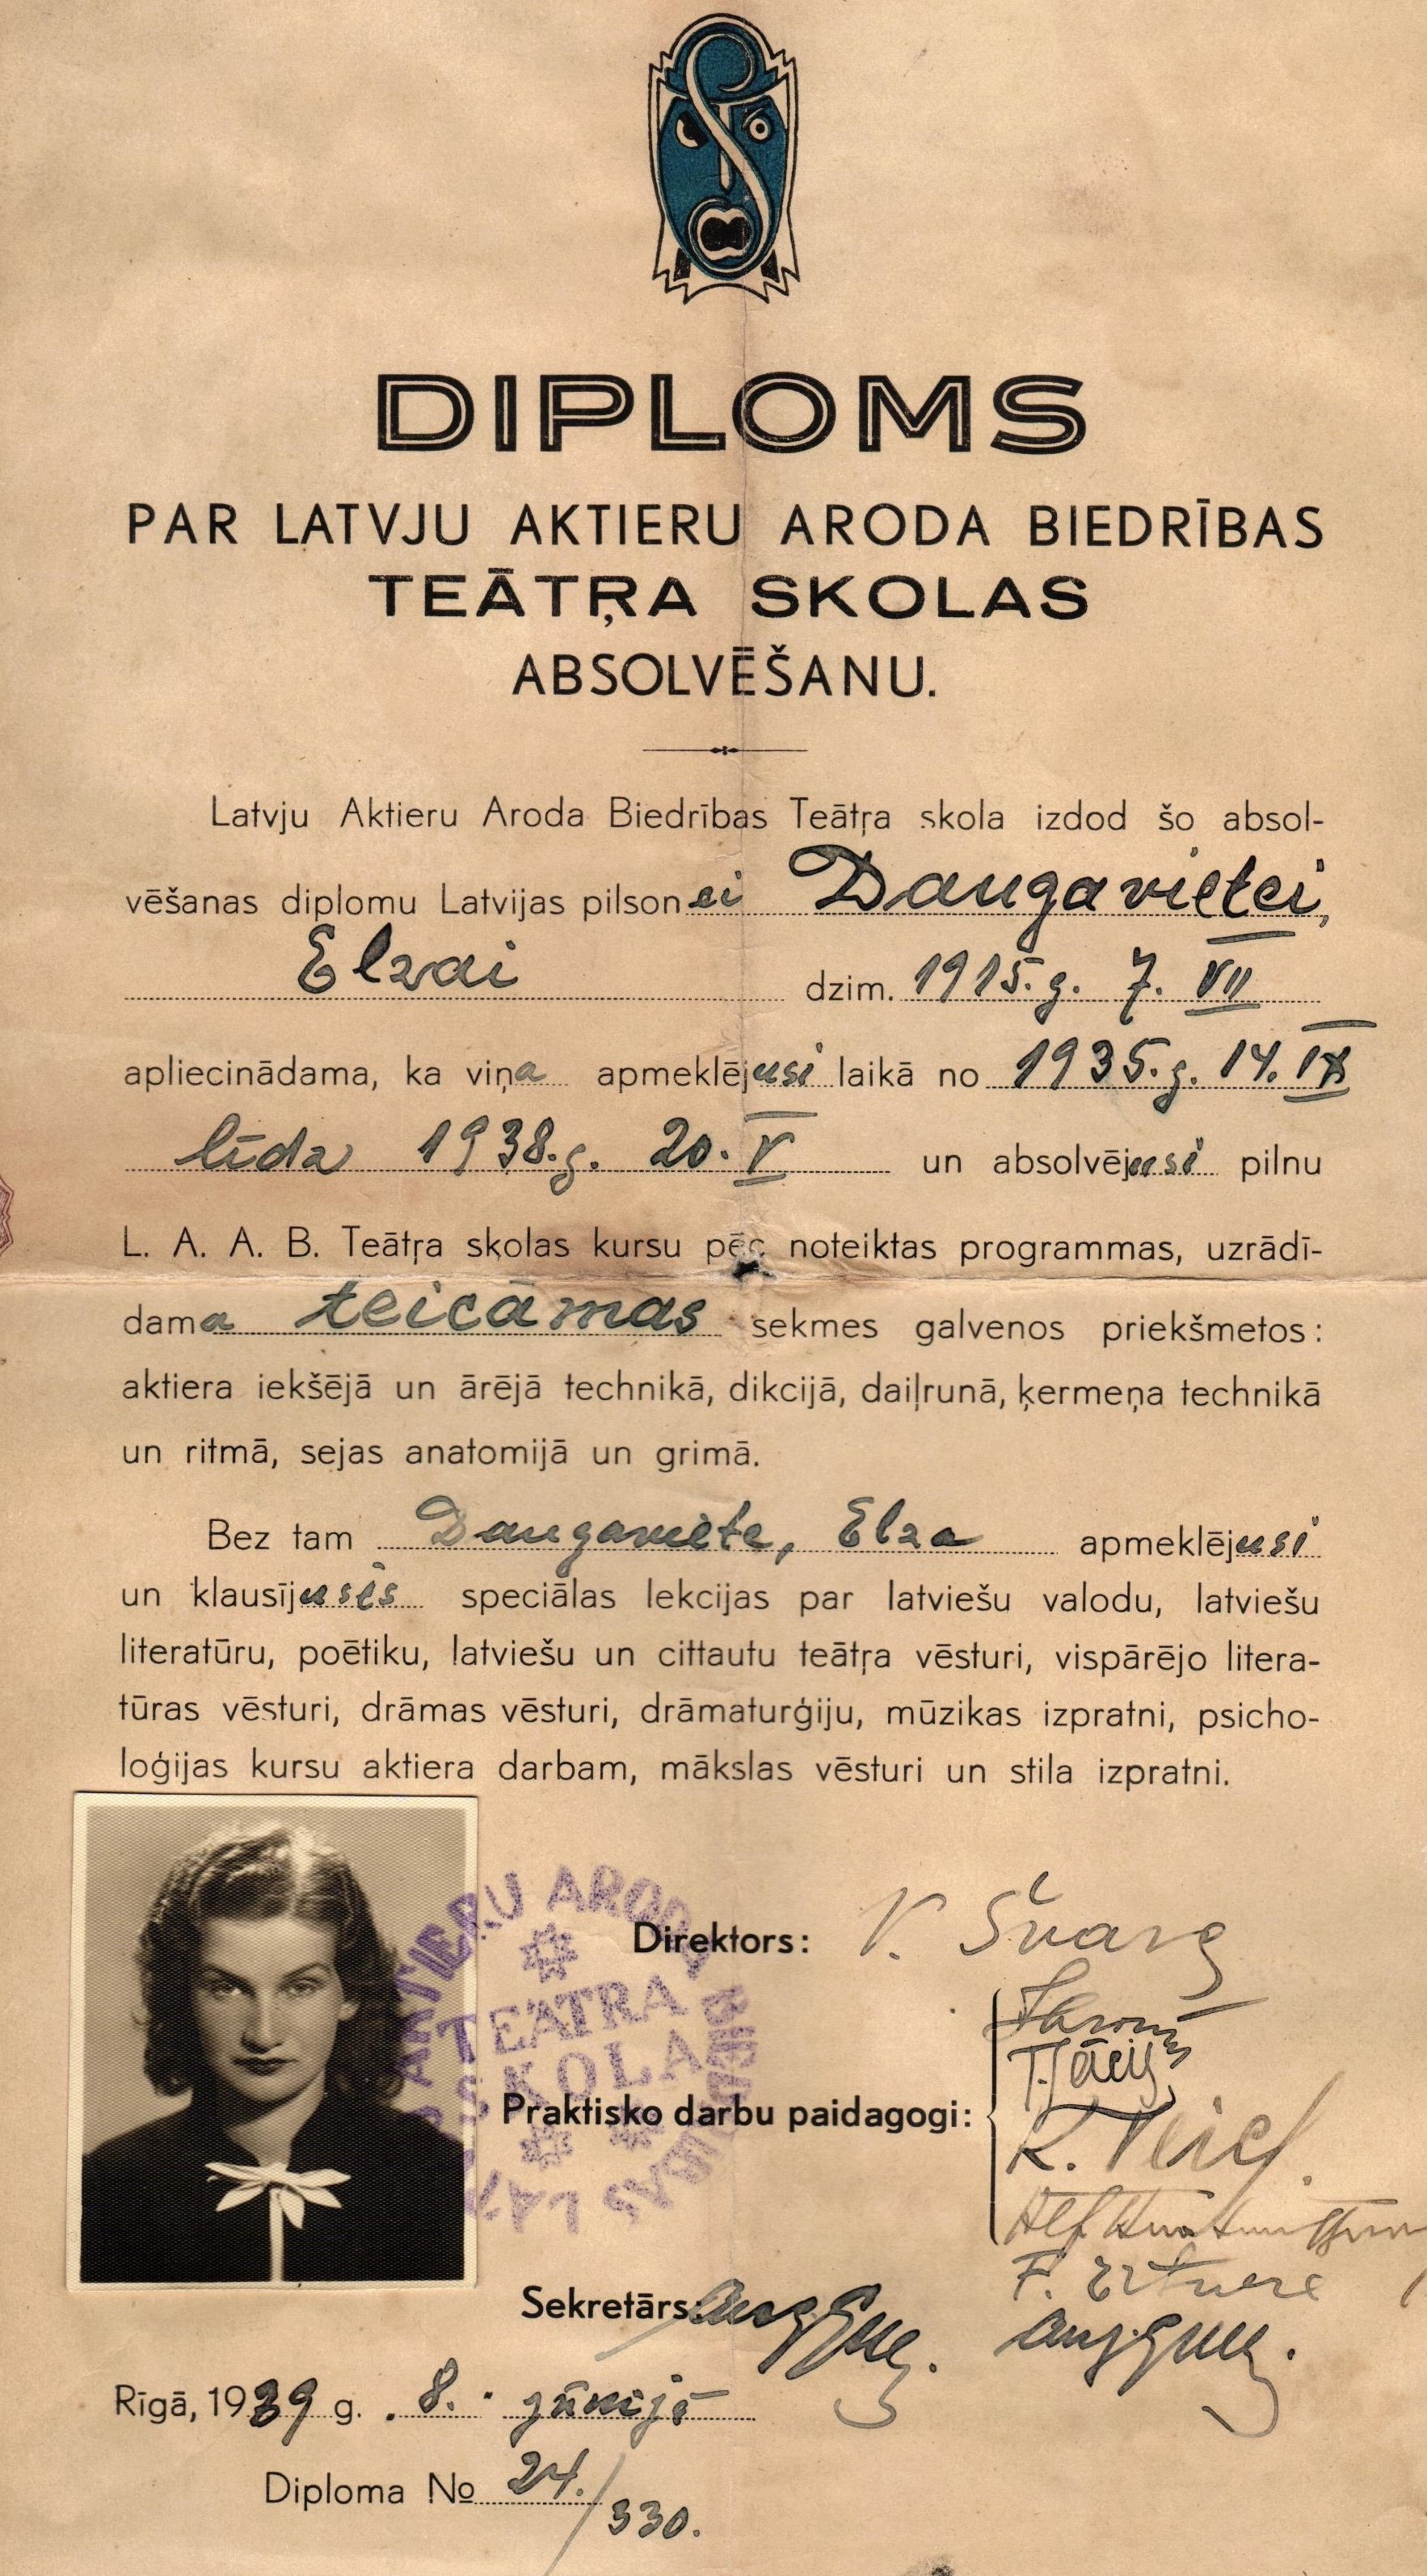 DIPLOMS
PAR LATVJU AKTIERU ARODA BIEDRĪBAS
TEĀTŖA SKOLAS
ABSOLVĒŠANU.
Latvju Aktieru Aroda Biedrības Teātŗa skola izdod šo absol-
vēšanas diplomu Latvijas pilsonei Daugavietei,
Elzai dzim. 1915.g. 7. VII
apliecinādama, ka viņa apmeklējusi laikā no 1935.g. 14. IX
līdz 1938.g. 20. V un absolvējusi pilnu
L. A. A. B. Teātŗa skolas kursu pēc noteiktas programmas, uzrādī-
dama teicamas sekmes galvenos priekšmetos:
aktiera iekšējā un ārējā technikā, dikcijā, daiļrunā, ķermeņa technikā
un ritmā, sejas anatomijā un grimā.
Bez tam Daugaviete, Elza apmeklējusi
un klausījusies speciālas lekcijas par latviešu valodu, latviešu
literatūru, poētiku, latviešu un cittautu teātŗa vēsturi, vispārējo litera-
tūras vēsturi, drāmas vēsturi, drāmaturģiju, mūzikas izpratni, psicho-
loģijas kursu aktiera darbam, mākslas vēsturi un stila izpratni.
LATVJU AKTIERU ARODA BIEDRĪBAS
TEATRA
SKOLA
Direktors: V. Švarcs
Praktisko darbu paidagogi:
K. Veics.
F. Ertnere
Sekretārs:
Rīgā, 1939 g. 8. jūnijā
Diploma No 24./330.